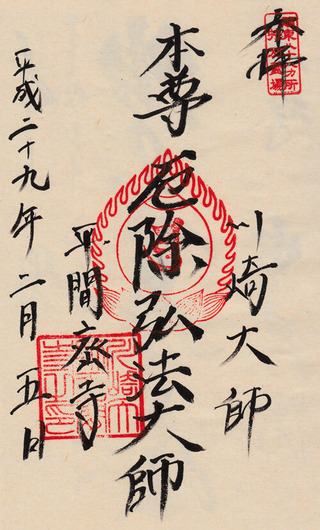 奉拝
川崎大師
本尊厄除弘法大師
平間寺
平成二十九年二月五日